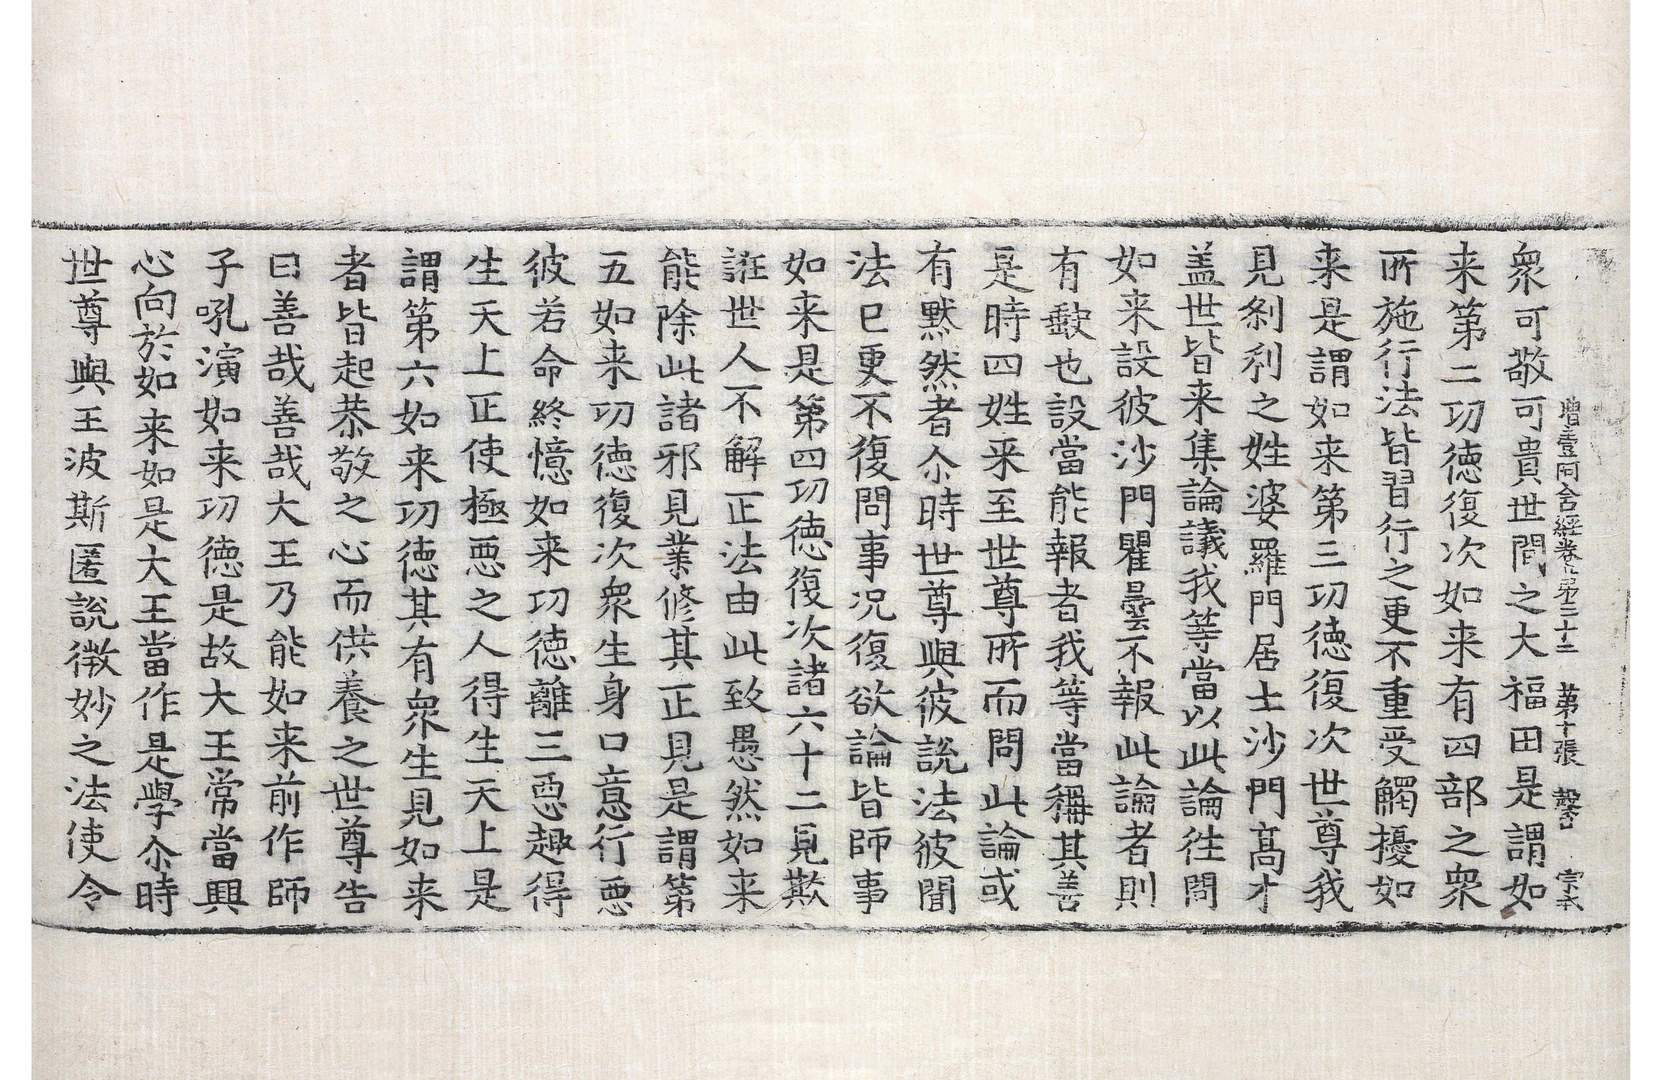 增壹阿含經卷第三十二 第十張 馨 宗衣
衆可敬可貴世間之大福田是謂如
来第二功德復次如来有四部之衆
所施行法皆習行之更不重受觸擾如
来是謂如来第三功德復次世尊我
見刹利之姓婆羅門居士沙門高才
盖世皆来集論議我等當以此論往問
如来設彼沙門瞿曇不報此論者則
有䨱也設當能報者我等當稱其善
是時四姓来至世尊所而問此論或
有默然者尒時世尊與彼說法彼聞
法已更不復問事况復欲論皆師事
如来是第四功德復次諸六十二見欺
誑世人不解正法由此致愚然如来
能除此諸邪見業修其正見是謂第
五如来功德復次衆生身口意行惡
彼若命終憶如来功德離三惡趣得
生天上正使極惡之人得生天上是
謂第六如来功德其有衆生見如来
者皆起恭敬之心而供養之世尊告
曰善哉善哉大王乃能如来前作師
子吼演如来功德是故大王常當興
心向於如来如是大王當作是學尒時
世尊與王波斯匿說微妙之法使令